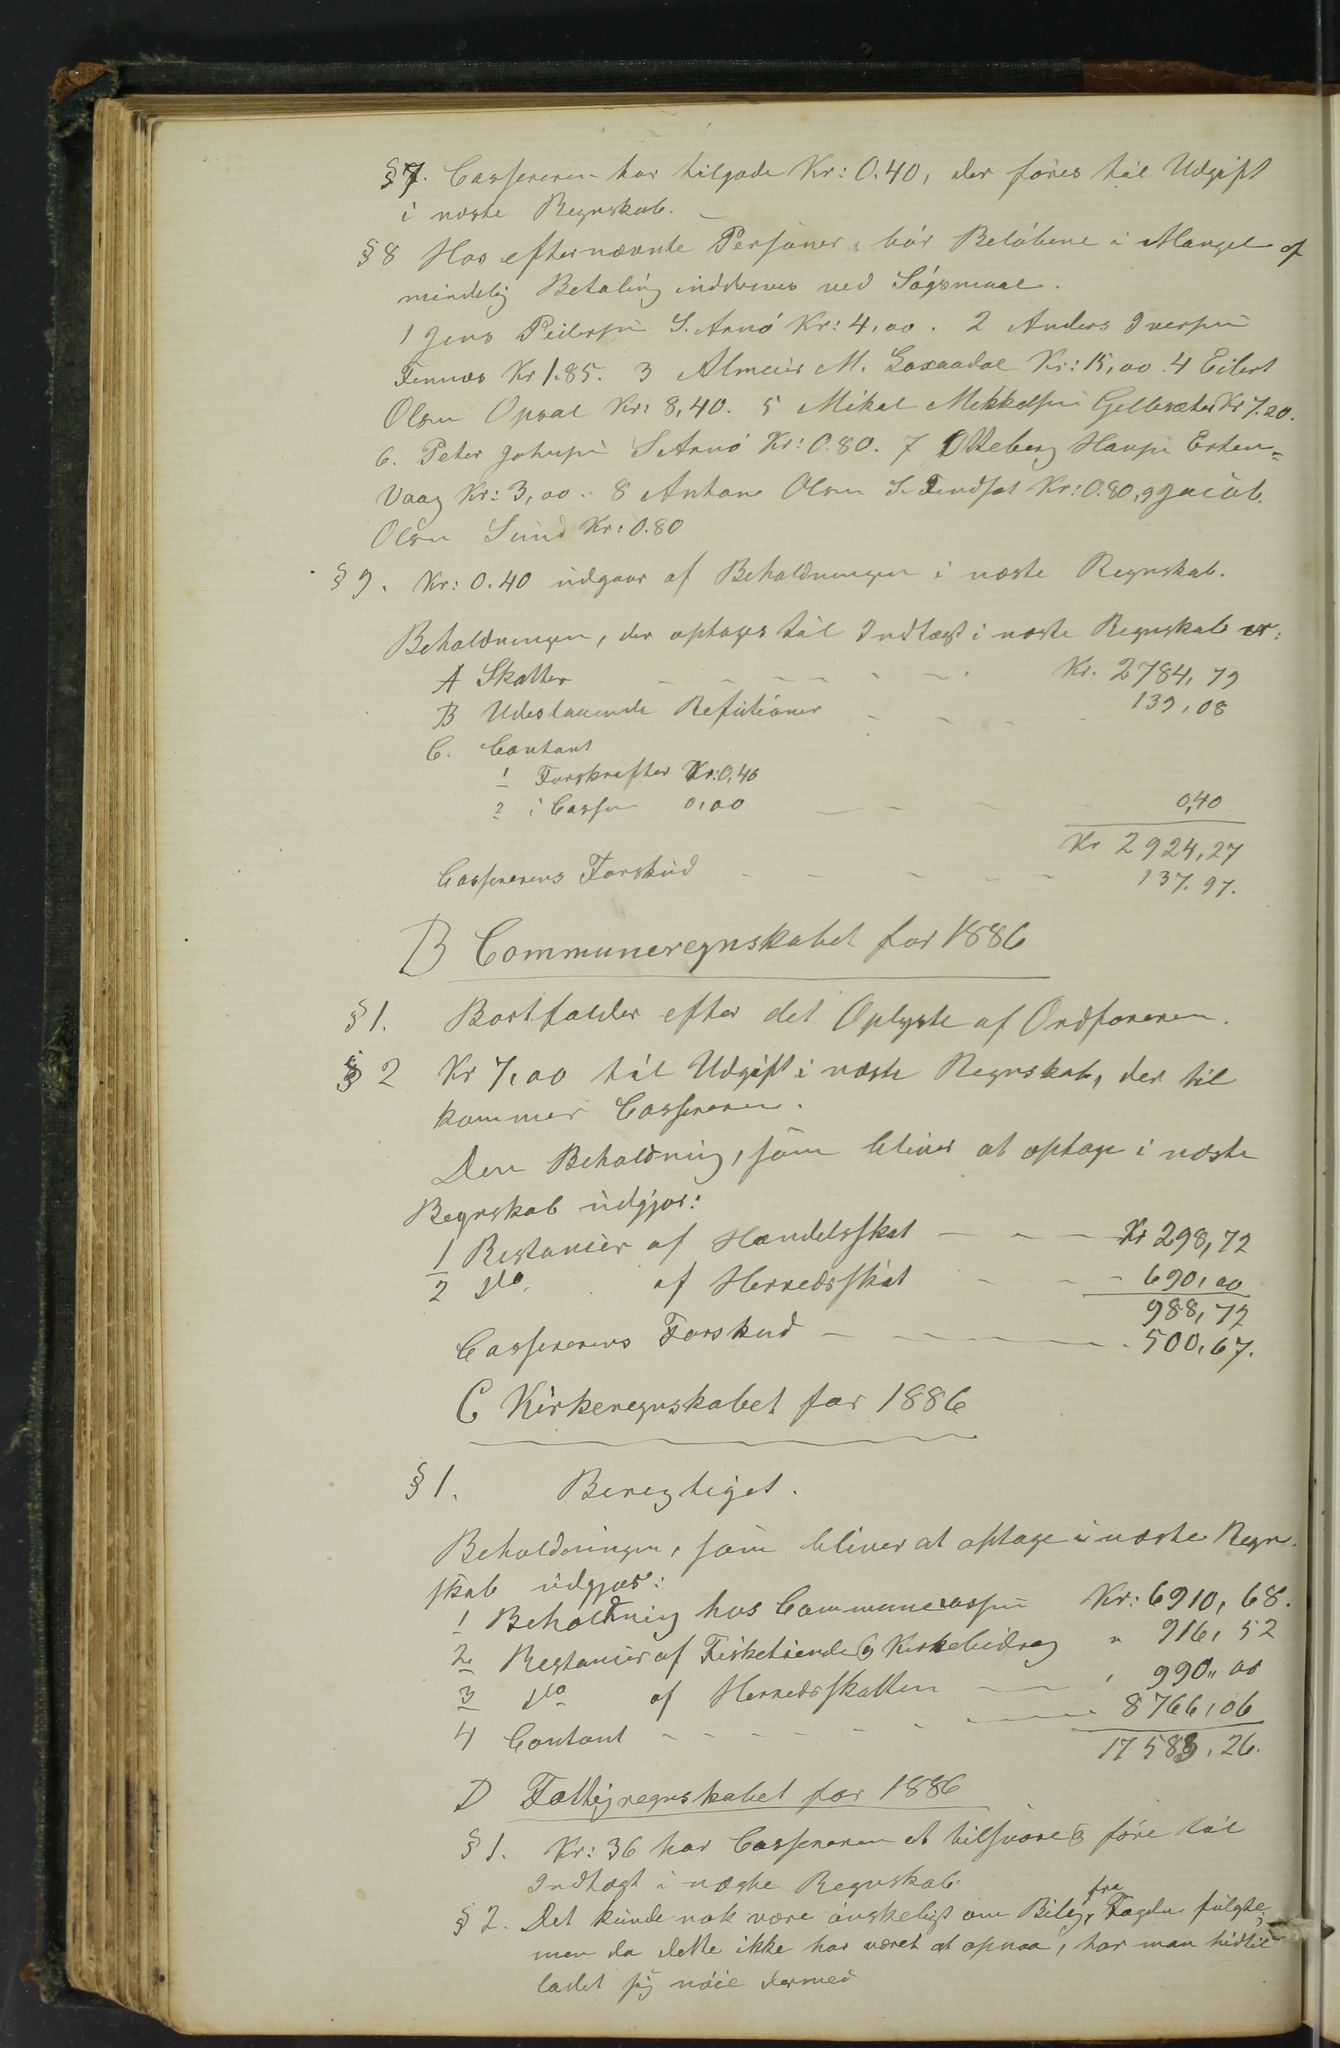 §7. Cassereren har tilgode Kr: 0.40, der føres til Udgift
i næste Regnskab. –
§8 Hos efternævnte Personer bør Beløbene i Mangel af
mindelig Betaling inddrives ved Søgsmaal.
1 Jens Pedersen S. Arnø Kr: 4,00. 2 Anders Iversen
Fennes Kr 1.85. 3 Almeier M. Kr: 15,00. 4 Eilert
Olsen Opsal Kr: 8,40. 5 Mikal Mikkelsen Gellesæter Kr 7.20.
6. Peter Johnsen S Arnø Kr: 0.80. 7 Olteberg Hansen Erten-
vaag Kr: 3,00. 8 Anton Olsen S. Kr: 0.80, 9 Jacob
Olsen Sund Kr: 0.80
§ 9. Kr: 0.40 udgaar af Beholdningen i næste Regnskab.
Beholdningen, der optages til Indtægt i næste Regnskab er:
A Skatter – – – – – – Kr. 2784,79
B Udestaaende Refutioner – – – 139,08
C. Contant
1 Forskrefter Kr: 0,40
2 i Cassen 0,00 – – – – 0,40
Kr 2924,27
Cassererens Forskud – – – – – 137.97.
B Communeregnskabet for 1886
§ 1. Bortfalder efter det Oplyste af Ordføreren.
§ 2 Kr 7,00 til Udgift i næste Regnskab, der til
kommer Cassereren.
Den Beholdning, som bliver at optage i næste
Regnskab udgjør:
1 Restancer af Handelsskat – – – Kr 298,72
2 Do af Herredsskat – – – 690,00
988,72
Cassererens Forskud – – – – – 500,67.
C Kirkeregnskabet for 1886
§ 1. Berigtiget.
Beholdningen, som bliver at optage i næste Regn-
skab udgjør:
1 Beholdning hos Communecassen Kr: 6910,68.
2 Restancer af Fisketiende og Kirkebidrag " 916,52
3 Do af Herredsskatten – – , 990,,00
4 Contant – – – – – – 8766,06
17583,26.
D Fattigregnskabet for 1886
§ 1. Kr: 36 har Cassereren at tilsvare og føre til
Indtægt i næste Regnskab.
§ 2. Det kunde nok være ønskeligt om Bilag fra Fogden fulgte;
men da dette ikke har været at opnaa, har man hidtil
ladet sig nøie dermed